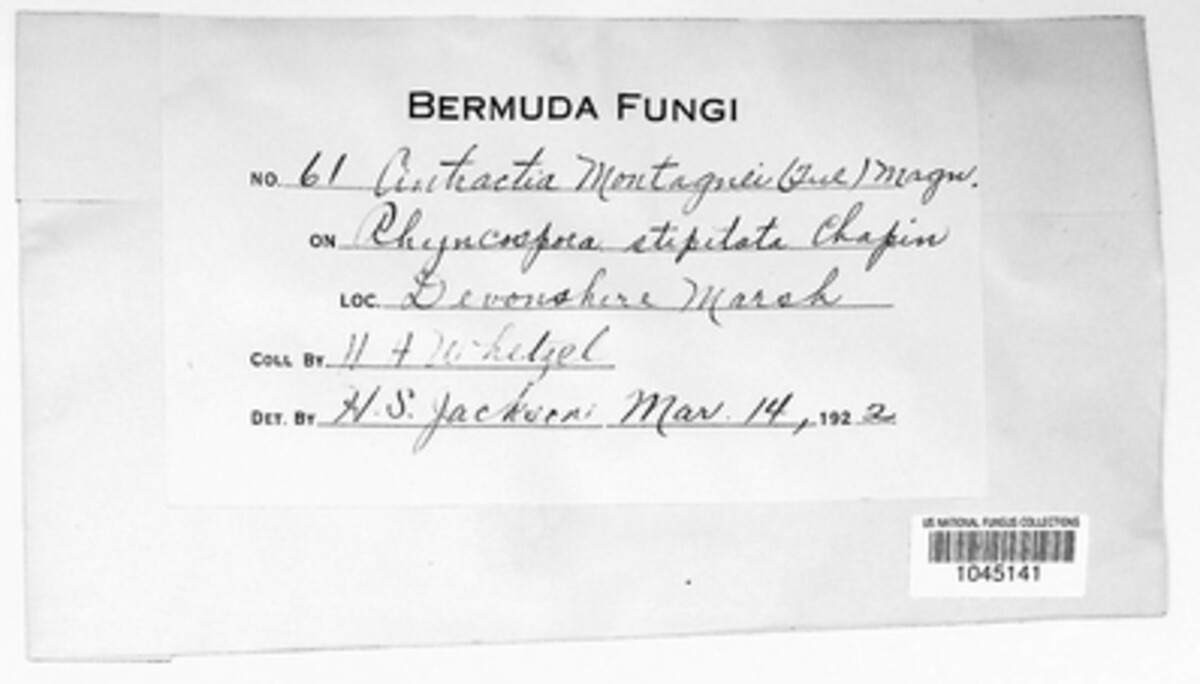 BERMUDA FUNGI
NO. 61 Cintractia Montagnei (Tul) Magn.
ON Rhyncospora stipitata Chapin
LOC. Devonshire Marsh
COLL BY H H Whetzel
DET. BY H. S. Jackson Mar. 14, 1922
US NATIONAL FUNGUS COLLECTIONS
1045141